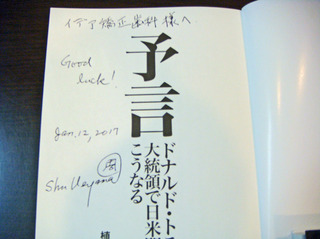 矯正歯科 様へ
Good
luck!
Jan. 12, 2017
Shu Ueyama
予言
ドナルド・ト
大統領で日米
こうなる
植